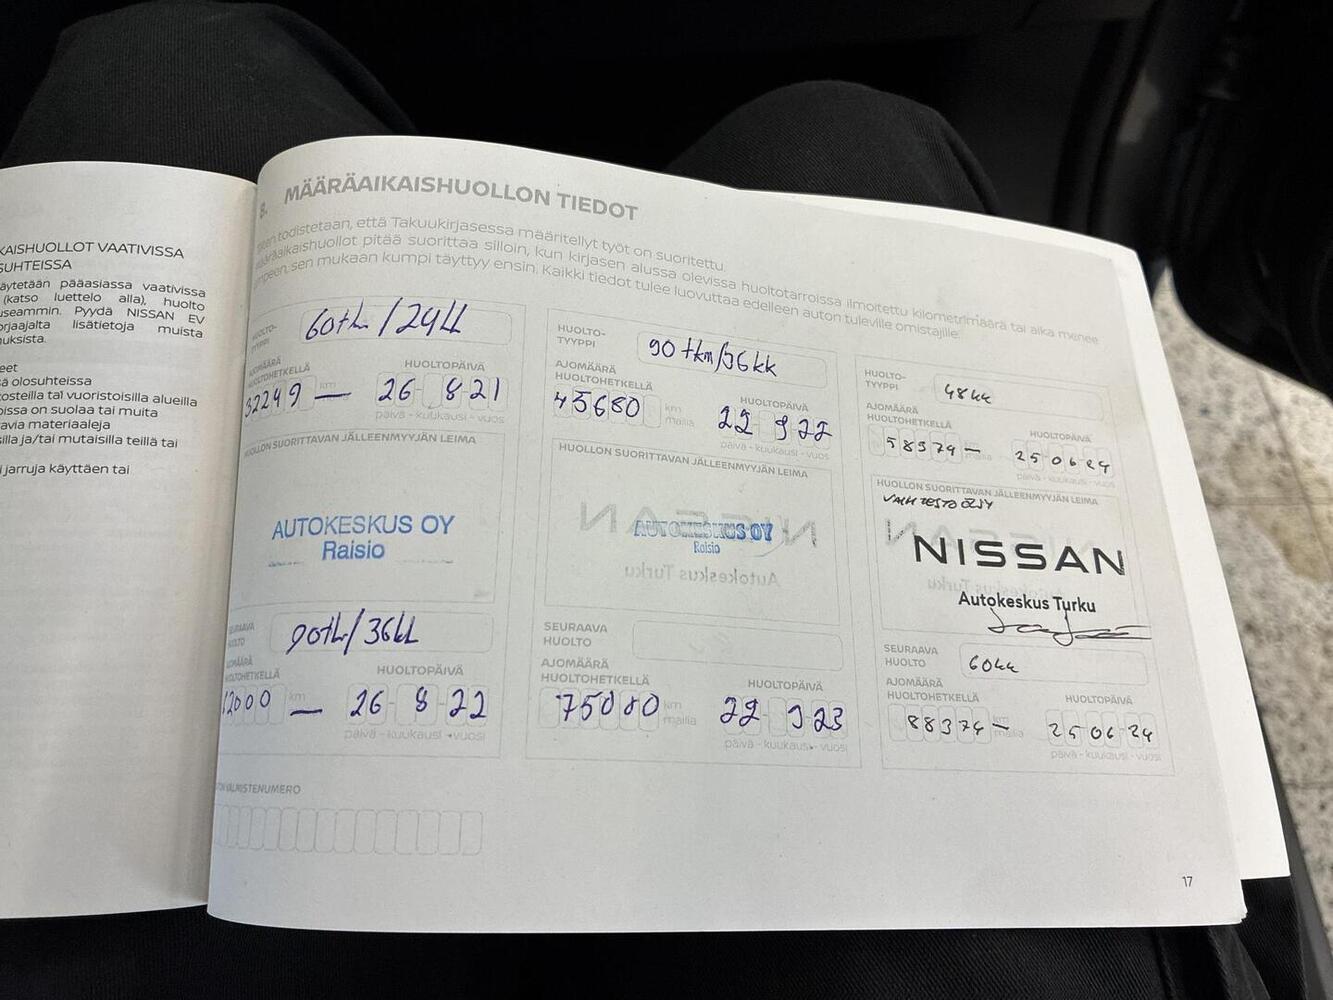 KAISHUOLLOT VAATIVISSA
SUHTEISSA
äytetään pääasiassa vaativissa
(katso luettelo alla), huolto
useammin. Pyydä NISSAN EV
orjaajalta lisätietoja muista
uksista.
eet
sä olosuhteissa
osteilla tai vuoristoisilla alueilla
oissa on suolaa tai muita
avia materiaaleja
silla ja/tai mutaisilla teillä tai
i jarruja käyttäen tai
8. MÄÄRÄAIKAISHUOLLON TIEDOT
todistetaan, että Takuukirjasessa määritellyt työt on suoritettu.
Määräaikaishuollot pitää suorittaa silloin, kun kirjasen alussa olevissa huoltotarroissa ilmoitettu kilometrimäärä tai aika menee
umpeen, sen mukaan kumpi täyttyy ensin. Kaikki tiedot tulee luovuttaa edelleen auton tuleville omistajille.
HUOLTO-
TYYPPI
60th/24kk
AJOMÄÄRÄ
HUOLTOHETKELLÄ
HUOLTOPÄIVÄ
32249 km — 26 8 21
päivä - kuukausi - vuosi
HUOLLON SUORITTAVAN JÄLLEENMYYJÄN LEIMA
AUTOKESKUS OY
Raisio
SEURAAVA
HUOLTO
90th/36kk
AJOMÄÄRÄ
HUOLTOHETKELLÄ
HUOLTOPÄIVÄ
2000 km — 26 8 22
päivä - kuukausi - vuosi
VALMISTENUMERO
HUOLTO-
TYYPPI
90 tkm/36kk
AJOMÄÄRÄ
HUOLTOHETKELLÄ
HUOLTOPÄIVÄ
45680 km
mailia
22 9 22
päivä - kuukausi - vuos
HUOLLON SUORITTAVAN JÄLLEENMYYJÄN LEIMA
AUTOKESKUS OY
Raisio
SEURAAVA
HUOLTO
AJOMÄÄRÄ
HUOLTOHETKELLÄ
HUOLTOPÄIVÄ
75000 km
mailia
22 9 23
päivä - kuukausi - vuosi
HUOLTO-
TYYPPI
48kk
AJOMÄÄRÄ
HUOLTOHETKELLÄ
HUOLTOPÄIVÄ
58374 — mailia
25 06 24
päivä - kuukausi - vuos
HUOLLON SUORITTAVAN JÄLLEENMYYJÄN LEIMA
NISSAN
Autokeskus Turku
SEURAAVA
HUOLTO
60kk
AJOMÄÄRÄ
HUOLTOHETKELLÄ
HUOLTOPÄIVÄ
88374 — mailia
25 06 24
päivä - kuukausi - vuosi
17